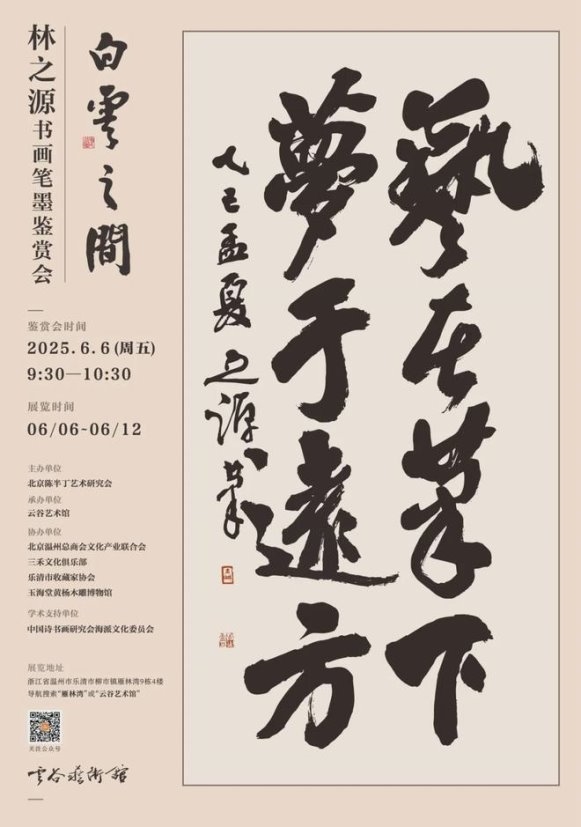 白雲之間
林之源书画笔墨鉴赏会
鉴赏会时间
2025.6.6(周五)
9:30—10:30
展览时间
06/06-06/12
主办单位
北京陈半丁艺术研究会
承办单位
云谷艺术馆
协办单位
北京温州总商会文化产业联合会
三禾文化俱乐部
乐清市收藏家协会
玉海堂黄杨木雕博物馆
学术支持单位
中国诗书画研究会海派文化委员会
展览地址
浙江省温州市乐清市柳市镇雁林湾9栋4楼
导航搜索“雁林湾”或“云谷艺术馆”
关注公众号
雲谷藝術館
藝在筆下
夢于遠方
乙巳孟夏之源筆